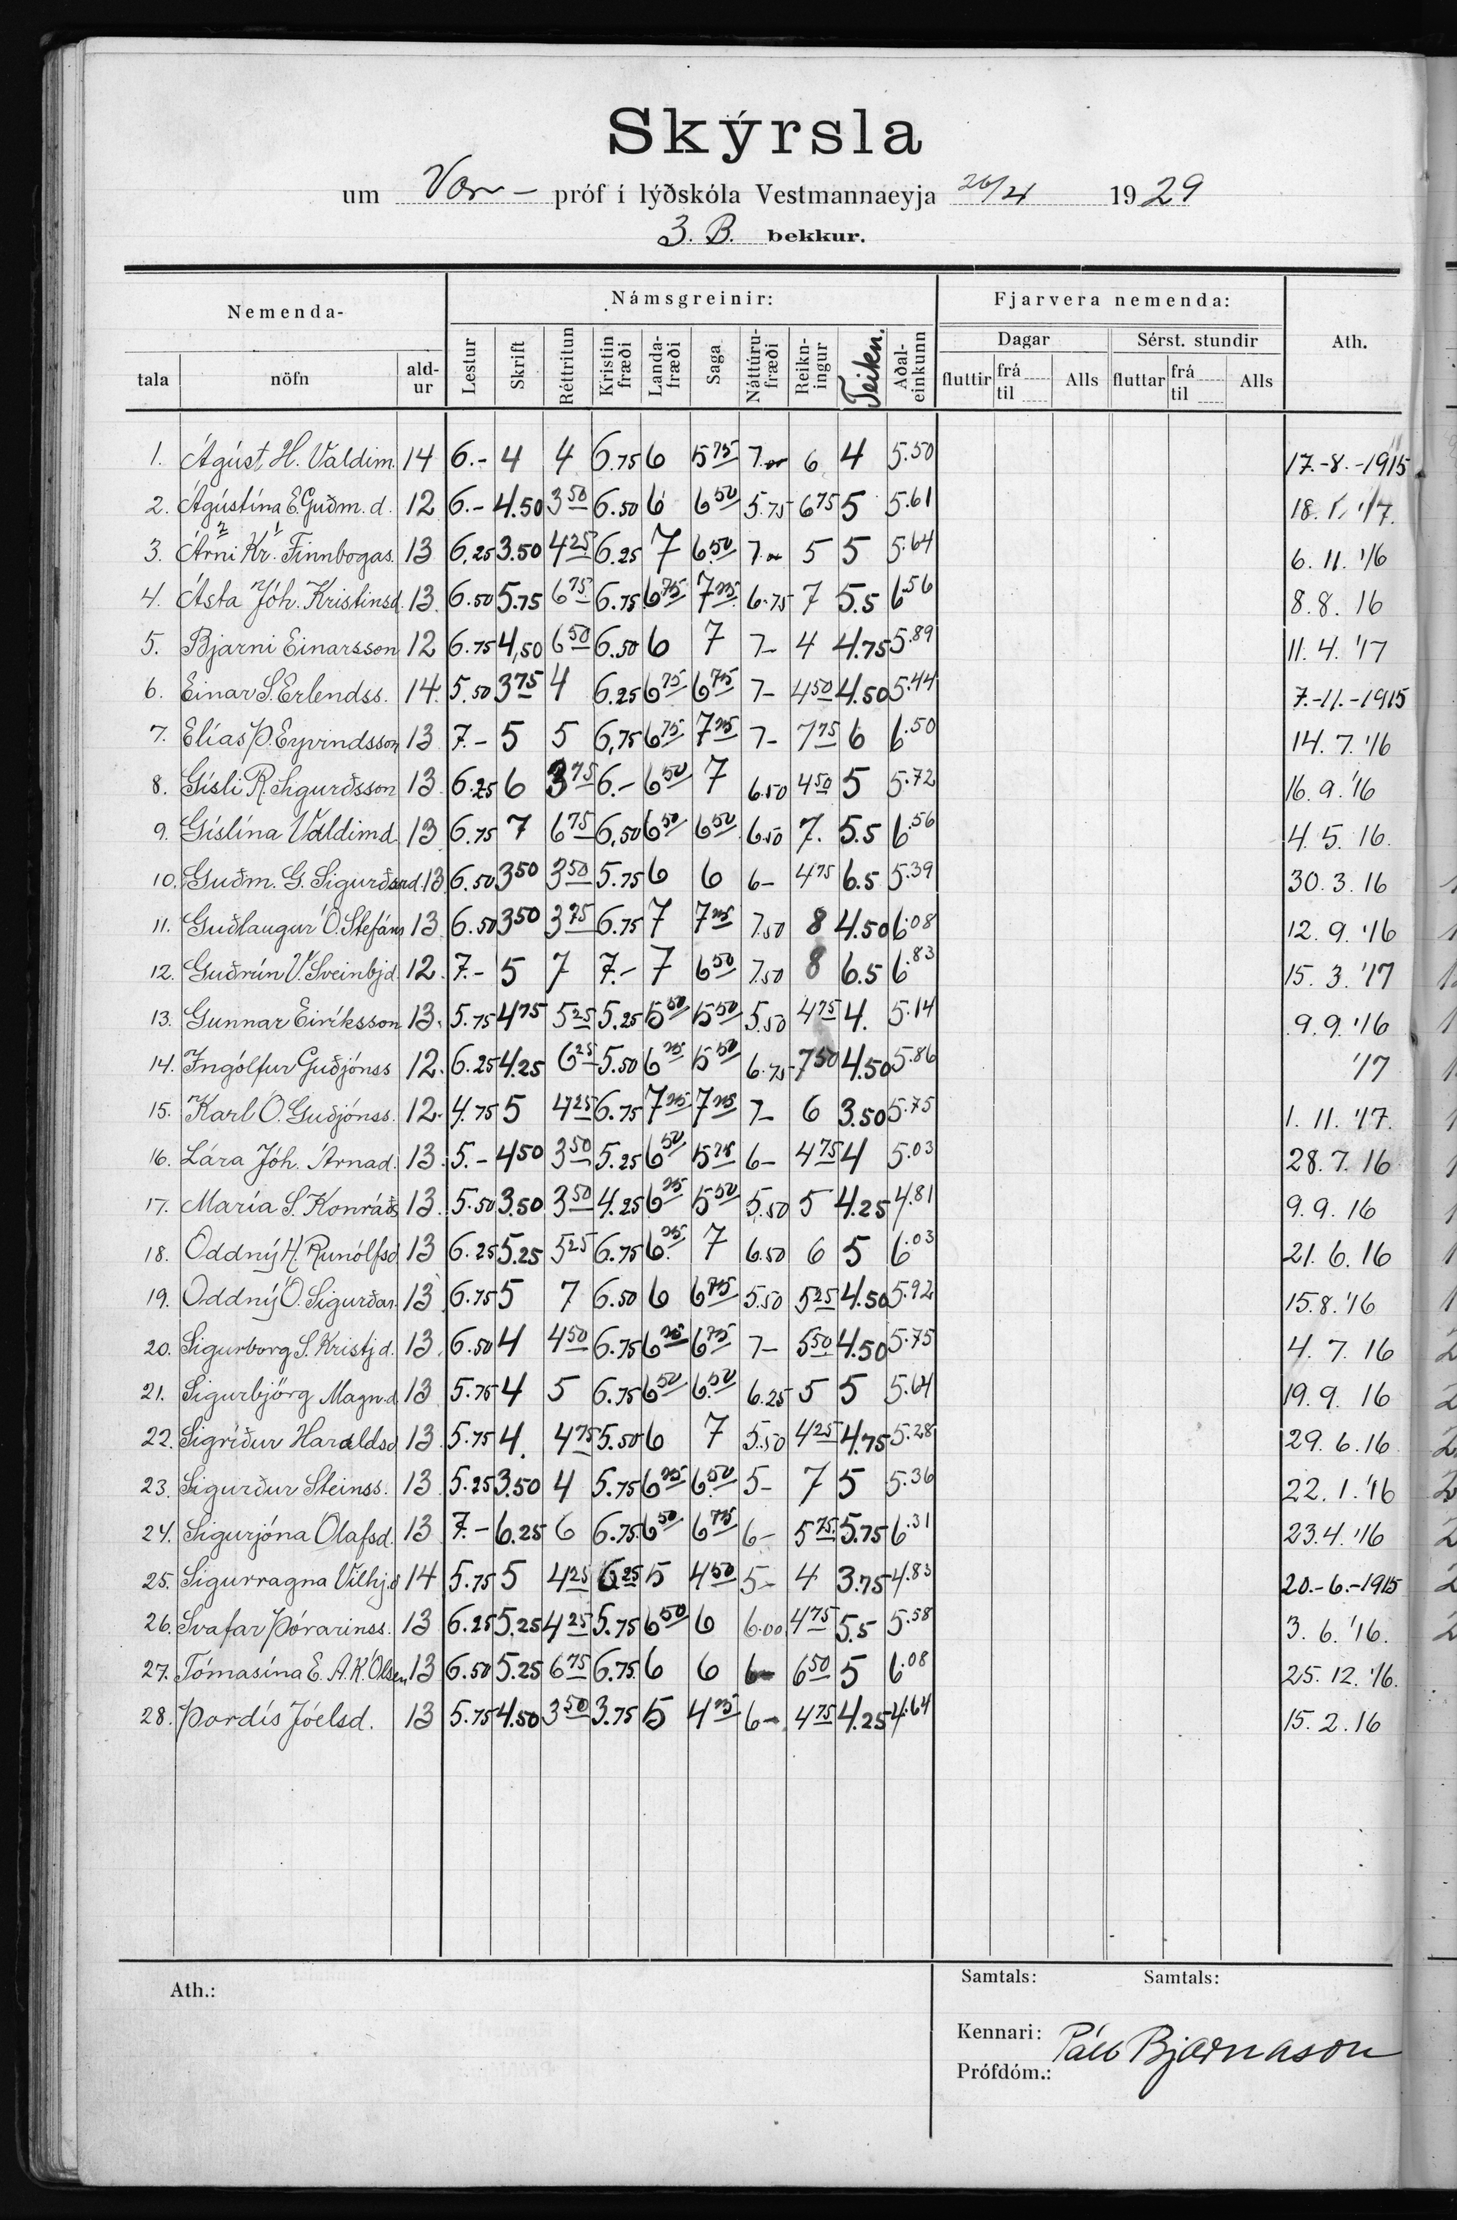 Skýrsla
um Vor- próf í lýðskóla Vestmannaeyja 26/4 1929
3. B. bekkur.
Nemenda- Námsgreinir: Fjarvera nemenda: Ath.
Dagar Sérst. stundir
tala nöfn ald-ur Lestur Skrift Réttritun Kristin fræði Landa-fræði Saga Náttúru-fræði Reikn-ingur Teikn. Aðal-einkunn fluttir frá til Alls fluttar frá til Alls
1. Ágúst H. Valdim. 14 6.- 4 4 6.75 6 5 75 7.- 6 4 5.50 17.-8.-1915
2. Ágústína E. Guðm. d. 12 6.- 4.50 3 50 6.50 6 6 50 5.75 6 75 5 5.61 18. 1. '17.
3. Árni Kr. Finnbogas. 13 6.25 3.50 4 25 6.25 7 6 50 7.- 5 5 5.64 6. 11. '16
4. Ásta Jóh. Kristinsd. 13. 6.50 5.75 6 75 6.75 6 75 7 25 6.75 7 5.5 6.56 8. 8. 16
5. Bjarni Einarsson 12 6.75 4,50 6 50 6.50 6 7 7- 4 4.75 5.89 11. 4. '17
6. Einar S. Erlendss. 14. 5.50 3 75 4 6.25 6 75 6 75 7- 4 50 4.50 5.44 7.-11.-1915
7. Elías Þ. Eyvindsson 13 7.- 5 5 6,75 6 75 7 25 7- 7 75 6 6.50 14. 7. '16
8. Gísli R. Sigurðsson 13 6.25 6 3 75 6.- 6 50 7 6.50 4 50 5 5.72 16. 9. '16
9. Gíslína Valdimd. 13 6.75 7 6 75 6,50 6 50 6 50 6.50 7. 5.5 6.56 4. 5. 16.
10. Guðm. G. Sigurðard. 13 6.50 3 50 3 50 5.75 6 6 6- 4 75 6.5 5.39 30. 3. 16
11. Guðlaugur Ó. Stefáns 13 6.50 3 50 3 75 6.75 7 7 25 7.50 8 4.50 6.08 12. 9. '16
12. Guðrún V. Sveinbjd. 12. 7.- 5 7 7.- 7 6 50 7.50 8 6.5 6.83 15. 3. '17
13. Gunnar Eiríksson 13. 5.75 4 75 5 25 5.25 5 50 5 50 5.50 4 75 4. 5.14 9. 9. '16
14. Ingólfur Guðjónss 12. 6.25 4.25 6 25 5.50 6 25 5 50 6.75 7 50 4.50 5.86 '17
15. Karl Ó. Guðjónss. 12. 4.75 5 4 25 6.75 7 25 7 25 7- 6 3.50 5.75 1. 11. '17.
16. Lára Jóh. Árnad. 13. 5.- 4 50 3 50 5.25 6 50 5 75 6- 4 75 4 5.03 28. 7. 16
17. María S. Konráðs 13. 5.50 3.50 3 50 4.25 6 25 5 50 5.50 5 4.25 4.81 9. 9. 16
18. Oddný H. Runólfsd. 13 6.25 5.25 5 25 6.75 6 25 7 6.50 6 5 6.03 21. 6. 16
19. Oddný Ó. Sigurðar. 13 6.75 5 7 6.50 6 6 75 5.50 5 25 4.50 5.92 15. 8. '16
20. Sigurborg S. Kristjd. 13. 6.50 4 4 50 6.75 6 25 6 75 7- 5 50 4.50 5.75 4. 7. 16
21. Sigurbjörg Magn.d. 13 5.75 4 5 6.75 6 50 6.50 6.25 5 5 5.64 19. 9. 16
22. Sigríður Haraldsd 13. 5.75 4. 4 75 5.50 6 7 5.50 4 25 4.75 5.28 29. 6. 16
23. Sigurður Steinss. 13 5.25 3.50 4 5.75 6 25 6.50 5- 7 5 5.36 22. 1. '16
24. Sigurjóna Ólafsd. 13 7.- 6.25 6 6.75 6 50 6 75 6- 5 75 5.75 6.31 23. 4. '16
25. Sigurragna Vilhj.d 14 5.75 5 4 25 6 25 5 4 50 5- 4 3.75 4.83 20.-6.-1915
26. Svafar Þórarinss. 13 6.25 5.25 4 25 5.75 6 50 6 6.00 4 75 5.5 5.58 3. 6. '16.
27. Tómasína E. A. K. Olsen 13 6.50 5.25 6 75 6.75 6 6 6- 6 50 5 6.08 25. 12. '16.
28. Þordís Jóelsd. 13 5.75 4.50 3 50 3.75 5 4 25 6- 4 75 4.25 4.64 15. 2. 16
Ath.: Samtals: Samtals:
Kennari: Páll Bjarnason
Prófdóm.: